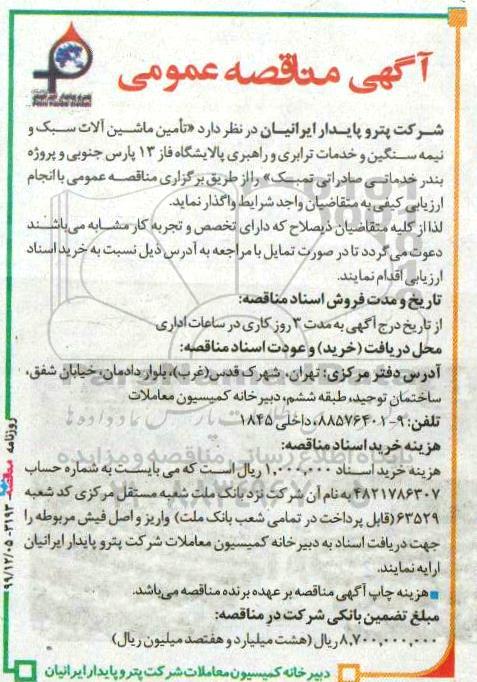 آگهی مناقصه عمومی
شرکت پترو پایدار ایرانیان در نظر دارد «تأمین ماشین آلات سبک و
نیمه سنگین و خدمات ترابری و راهبری پالایشگاه فاز ۱۳ پارس جنوبی و پروژه
بندر خدماتی صادراتی تمبک» را از طریق برگزاری مناقصه عمومی با انجام
ارزیابی کیفی به متقاضیان واجد شرایط واگذار نماید.
لذا از کلیه متقاضیان ذیصلاح که دارای تخصص و تجربه کار مشابه می‌باشند
دعوت می‌گردد تا در صورت تمایل با مراجعه به آدرس ذیل نسبت به خرید اسناد
ارزیابی اقدام نمایند.
تاریخ و مدت فروش اسناد مناقصه:
از تاریخ درج آگهی به مدت ۳ روز کاری در ساعات اداری
محل دریافت (خرید) و عودت اسناد مناقصه:
آدرس دفتر مرکزی: تهران، شهرک قدس(غرب)، بلوار دادمان، خیابان شفق،
ساختمان توحید، طبقه ششم، دبیرخانه کمیسیون معاملات
تلفن: ۹-۸۸۵۷۶۴۰۱، داخلی ۱۸۴۵
هزینه خرید اسناد مناقصه:
هزینه خرید اسناد ۱,۰۰۰,۰۰۰ ریال است که می بایست به شماره حساب
۴۸۲۱۷۸۶۳۰۷ به نام آن شرکت نزد بانک ملت شعبه مستقل مرکزی کد شعبه
۶۳۵۲۹ (قابل پرداخت در تمامی شعب بانک ملت) واریز و اصل فیش مربوطه را
جهت دریافت اسناد به دبیرخانه کمیسیون معاملات شرکت پترو پایدار ایرانیان
ارایه نمایند.
هزینه چاپ آگهی مناقصه بر عهده برنده مناقصه می‌باشد.
مبلغ تضمین بانکی شرکت در مناقصه:
۸,۷۰۰,۰۰۰,۰۰۰ ریال (هشت میلیارد و هفتصد میلیون ریال)
دبیرخانه کمیسیون معاملات شرکت پترو پایدار ایرانیان
روزنامه مناقصه ۳۱۹۳-۹۹/۱۲/۰۵